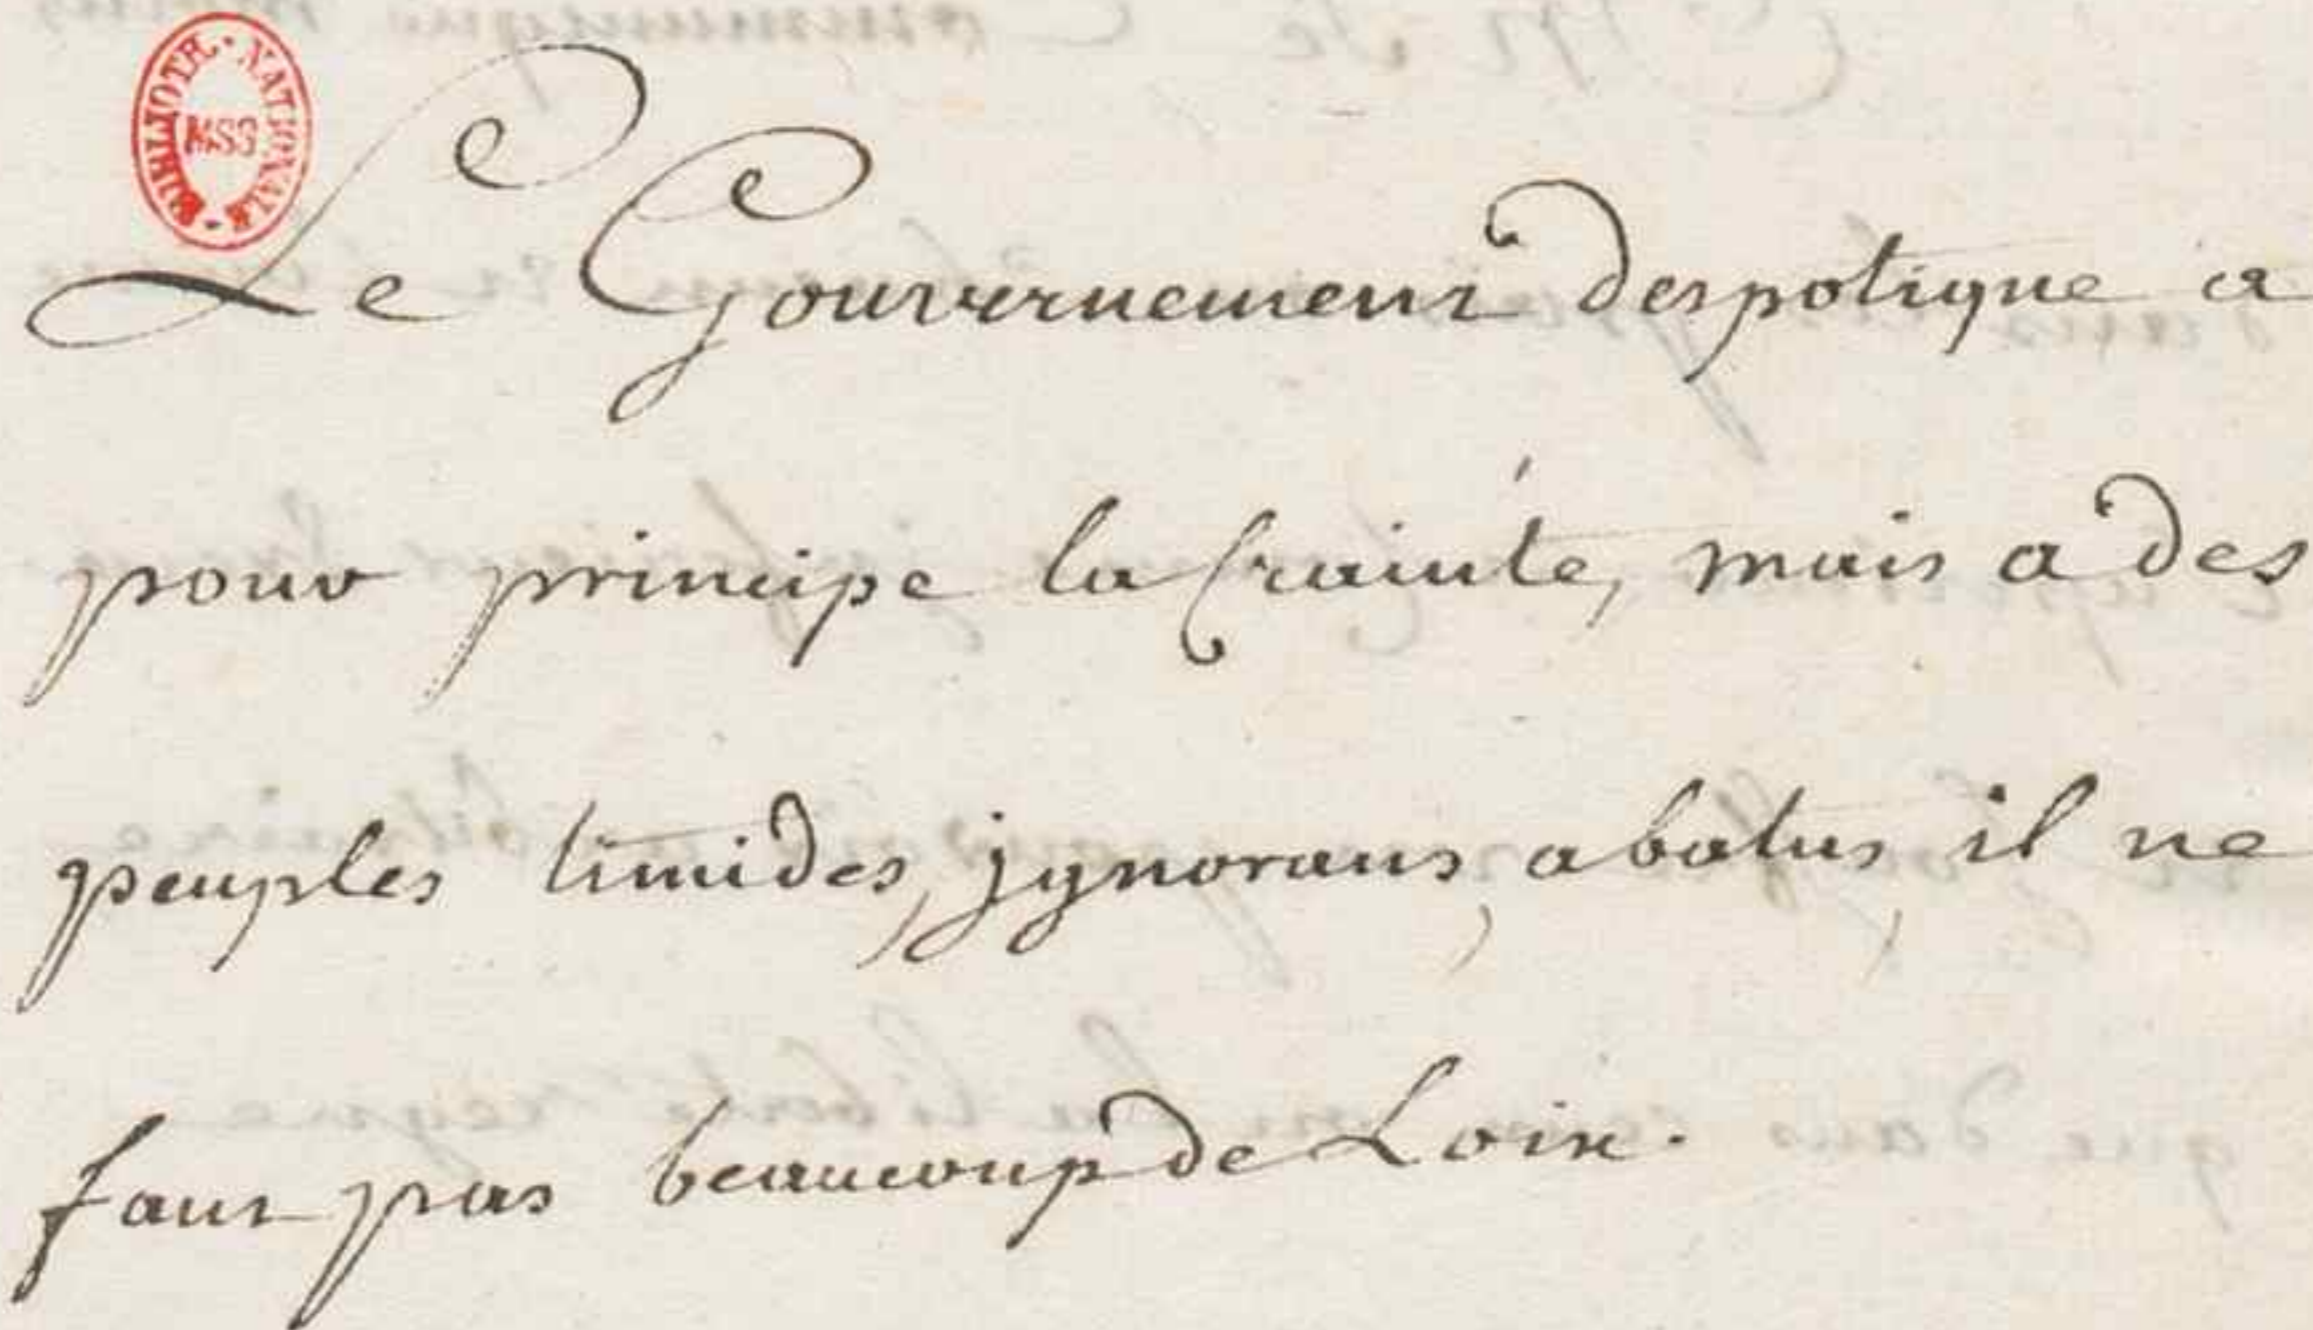 BIBLIOTH. NATIONALE
MSS
Le Gouvernement despotique a
pour principe la Crainte, mais a des
peuples timides, jgnorans, abatus, il ne
faut pas beaucoup de Loix.